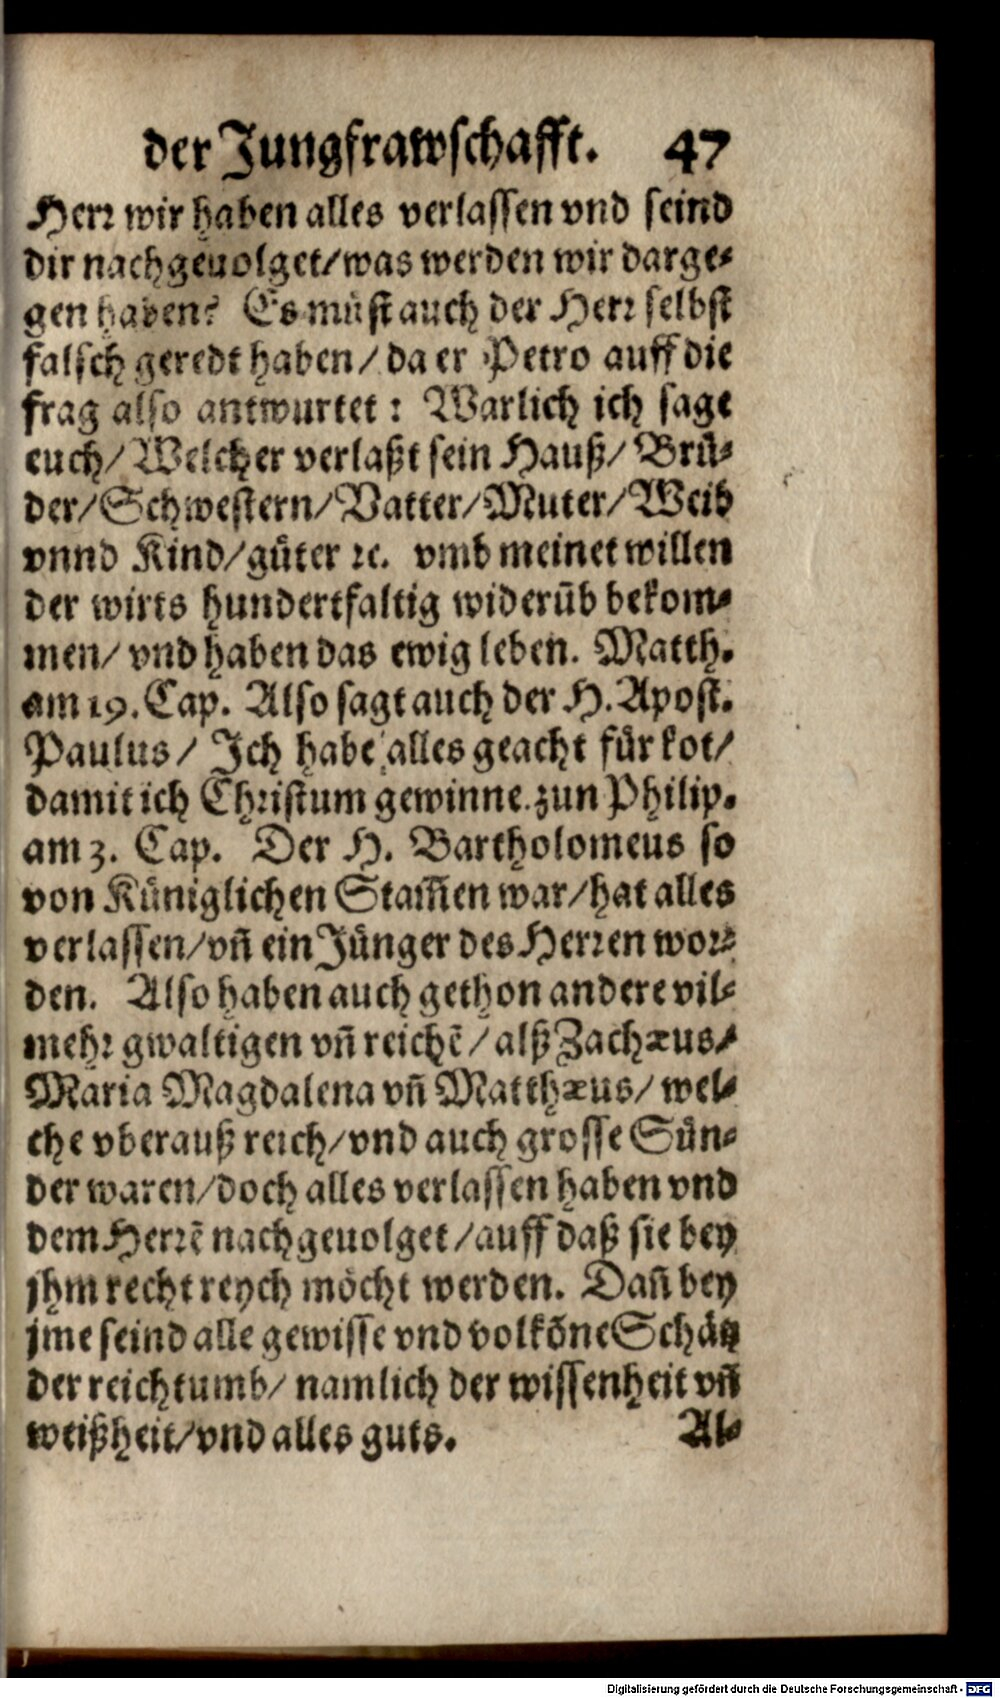 der Jungfrawschafft. 47
Herr wir haben alles verlassen vnd seind
dir nachgeuolget/was werden wir darge-
gen haben? Es müst auch der Herr selbst
falsch geredt haben/ da er Petro auff die
frag also antwurtet: Warlich ich sage
euch/ Welcher verlaßt sein Hauß/ Brü-
der/Schwestern/Vatter/Muter/Weib
vnnd Kind/güter ꝛc. vmb meinet willen
der wirts hundertfaltig widerūb bekom-
men/ vnd haben das ewig leben. Matth.
am 19. Cap. Also sagt auch der H. Apost.
Paulus/ Ich habe alles geacht für kot/
damit ich Christum gewinne. zun Philip.
am 3. Cap. Der H. Bartholomeus so
von Küniglichen Stam̄en war/hat alles
verlassen/vn̄ ein Jünger des Herren wor-
den. Also haben auch gethon andere vil-
mehr gwaltigen vn̄ reichē/ alß Zachæus/
Maria Magdalena vn̄ Matthæus/ wel-
che vberauß reich/vnd auch grosse Sün-
der waren/doch alles verlassen haben vnd
dem Herrē nachgeuolget/auff daß sie bey
jhm recht reych möcht werden. Dan̄ bey
jme seind alle gewisse vnd volkōne Schätz
der reichtumb/ namlich der wissenheit vn̄
weißheit/vnd alles guts. Al-
Digitalisierung gefördert durch die Deutsche Forschungsgemeinschaft - DFG